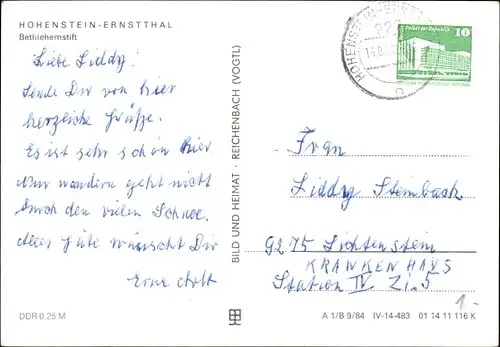 HOHENSTEIN-ERNSTTHAL
Bethlehemstift
Liebe Liddy!
Sende Dir von hier
herzliche Grüße.
Es ist sehr schön hier
Nur wandern geht nicht
durch den vielen Schnee.
Alles Gute wünscht Dir
Erna
DDR 0,25 M
BILD UND HEIMAT · REICHENBACH (VOGTL)
HOHENSTEIN-
Palast der Republik
10
Frau
Liddy Steinbach
9275 Lichtenstein
KRANKENHAUS
Station IV Zi. 5
1.-
A 1/B 9/84 IV-14-483 01 14 11 116 K